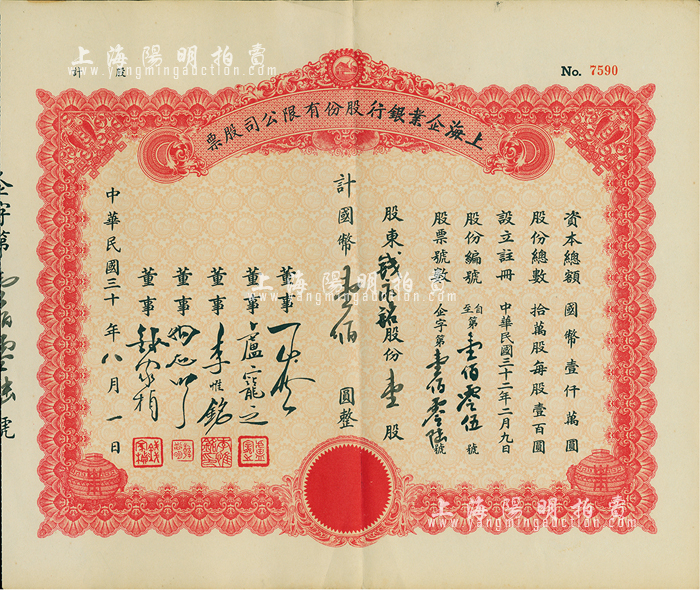 上海陽明拍賣
www.yangmingauction.com
計 股
No. 7590
上海企業銀行股份有限公司股票
資本總額 國幣壹仟萬圓
股份總數 拾萬股每股壹百圓
設立註冊 中華民國三十二年二月九日
股份編號 自至第壹佰零伍號
股票號數 企字第壹佰零陸號
股東錢永銘股份壹股
計國幣壹佰圓整
董事
董事 盧寵之
董事 李惟銘
董事
董事
中華民國三十 年八月一日
上海陽明拍賣
www.yangmingauction.com
上海陽明拍賣
www.yangmingauction.com